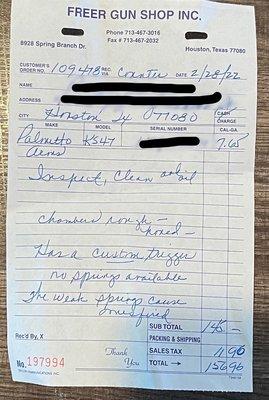 FREER GUN SHOP INC.
Phone 713-467-3016
8928 Spring Branch Dr. Fax # 713-467-2032 Houston, Texas 77080
CUSTOMER'S ORDER NO. 109473 REC. VIA Counter DATE 2/28/22
NAME
ADDRESS
CITY Houston Tx 077080 CASH
CHARGE
MAKE MODEL SERIAL NUMBER CAL-GA.
Palmetto KS47 7.65
Arms
Inspect, Clean and oil
Chambers rough -
honed -
Has a custom trigger
no springs available
The weak springs cause
Rec'd By, X
SUB TOTAL 145 -
PACKING & SHIPPING
No. 197994 Thank You SALES TAX 11 96
TOTAL → 156 96